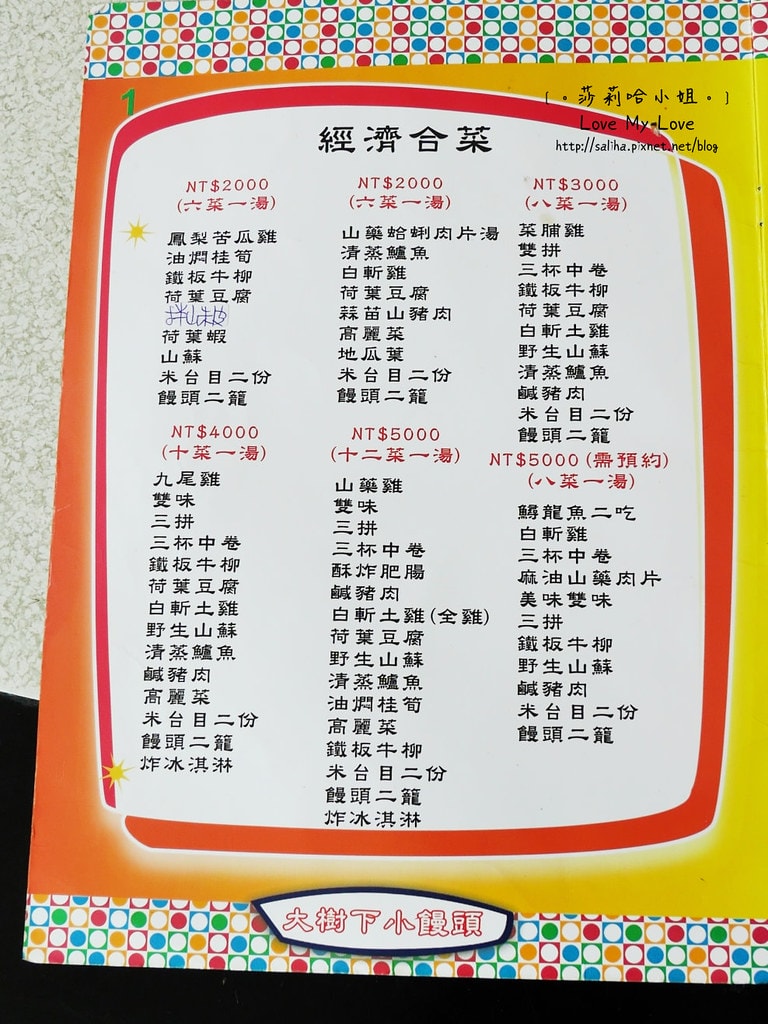 1
[。莎莉哈小姐。]
Love My Love
http://saliha.pixnet.net/blog
經濟合菜
NT$2000
(六菜一湯)
鳳梨苦瓜雞
油燜桂筍
鐵板牛柳
荷葉豆腐
荷葉蝦
山蘇
米台目二份
饅頭二籠
NT$2000
(六菜一湯)
山藥蛤蜊肉片湯
清蒸鱸魚
白斬雞
荷葉豆腐
蒜苗山豬肉
高麗菜
地瓜葉
米台目二份
饅頭二籠
NT$3000
(八菜一湯)
菜脯雞
雙拼
三杯中卷
鐵板牛柳
荷葉豆腐
白斬土雞
野生山蘇
清蒸鱸魚
鹹豬肉
米台目二份
饅頭二籠
NT$4000
(十菜一湯)
九尾雞
雙味
三拼
三杯中卷
鐵板牛柳
荷葉豆腐
白斬土雞
野生山蘇
清蒸鱸魚
鹹豬肉
高麗菜
米台目二份
饅頭二籠
炸冰淇淋
NT$5000
(十二菜一湯)
山藥雞
雙味
三拼
三杯中卷
酥炸肥腸
鹹豬肉
白斬土雞(全雞)
荷葉豆腐
野生山蘇
清蒸鱸魚
油燜桂筍
高麗菜
鐵板牛柳
米台目二份
饅頭二籠
炸冰淇淋
NT$5000(需預約)
(八菜一湯)
鱘龍魚二吃
白斬雞
三杯中卷
麻油山藥肉片
美味雙味
三拼
鐵板牛柳
野生山蘇
鹹豬肉
米台目二份
饅頭二籠
大樹下小饅頭